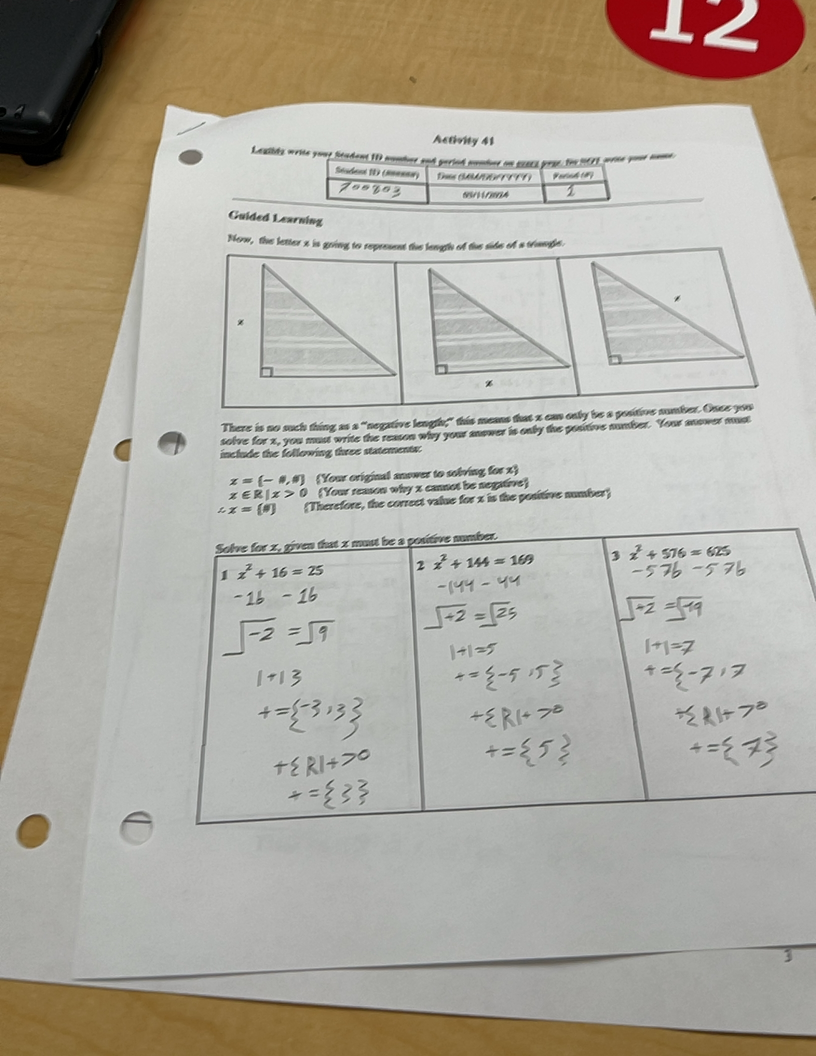 12
Activity 41
Legibly write your Student ID number and period number on every page. Do NOT write your name.
Student ID (######) Date (MM/DD/YYYY) Period (#)
700803 1
Guided Learning
Now, the letter x is going to represent the length of the side of a triangle.
x x x
There is no such thing as a “negative length,” this means that x can only be a positive number. Once you
solve for x, you must write the reason why your answer is only the positive number. Your answer must
include the following three statements:
x = {− #, #} (Your original answer to solving for x)
x ∈ ℝ | x > 0 (Your reason why x cannot be negative)
∴ x = {#} (Therefore, the correct value for x is the positive number)
Solve for x, given that x must be a positive number.
1 x² + 16 = 25
-16 - 16
√-2 = √9
1+1 3
+={-3,3}
+{R1+>0
+={3}
2 x² + 144 = 169
-144 - 44
√+2 = √25
1+1=5
+={-5,5}
+{R1+>0
+={5}
3 x² + 576 = 625
-576 -576
√+2 = √49
1+1=7
+={-7,7
+{R1+>0
+={7}
3